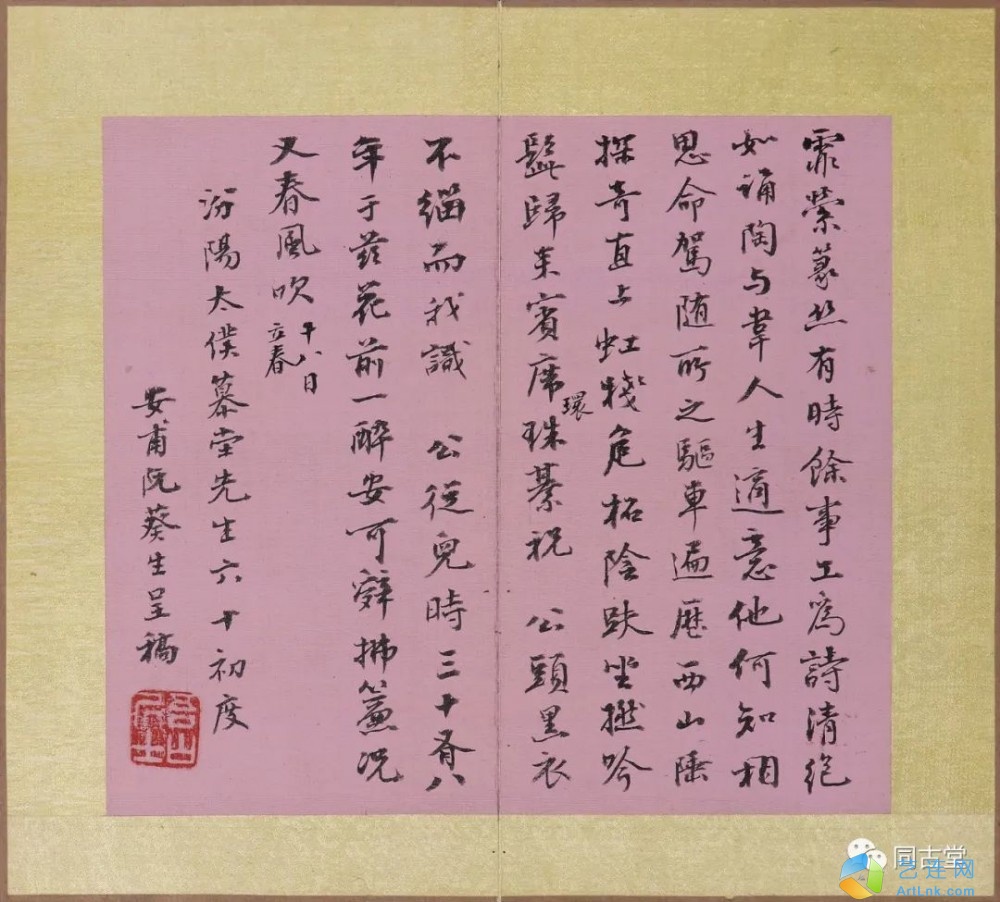 霏縈篆絲有時餘事工爲詩清絕
如誦陶与韋人生適意他何知相
思命駕随所之驅車遍歷西山陲
探奇直上虹棧危柘陰趺坐撚吟
髭歸來賓席環珠綦祝 公頭黑衣
不緇而我識 公從兒時三十有八
年于茲花前一醉安可辭拂簾况
又春風吹
十八日
立春
汾陽太僕慕堂先生六十初度
安甫阮葵生呈稿
同古堂
艺连网
ArtLnk.com